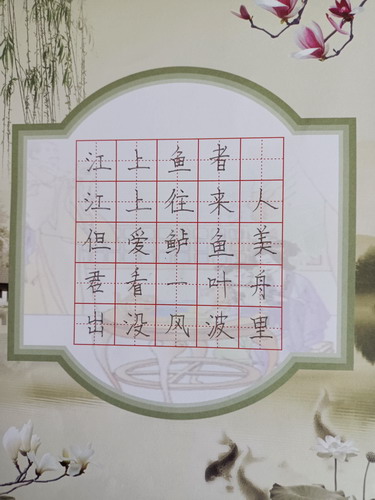 江上鱼者
江上往来人
但爱鲈鱼美
君看一叶舟
出没风波里